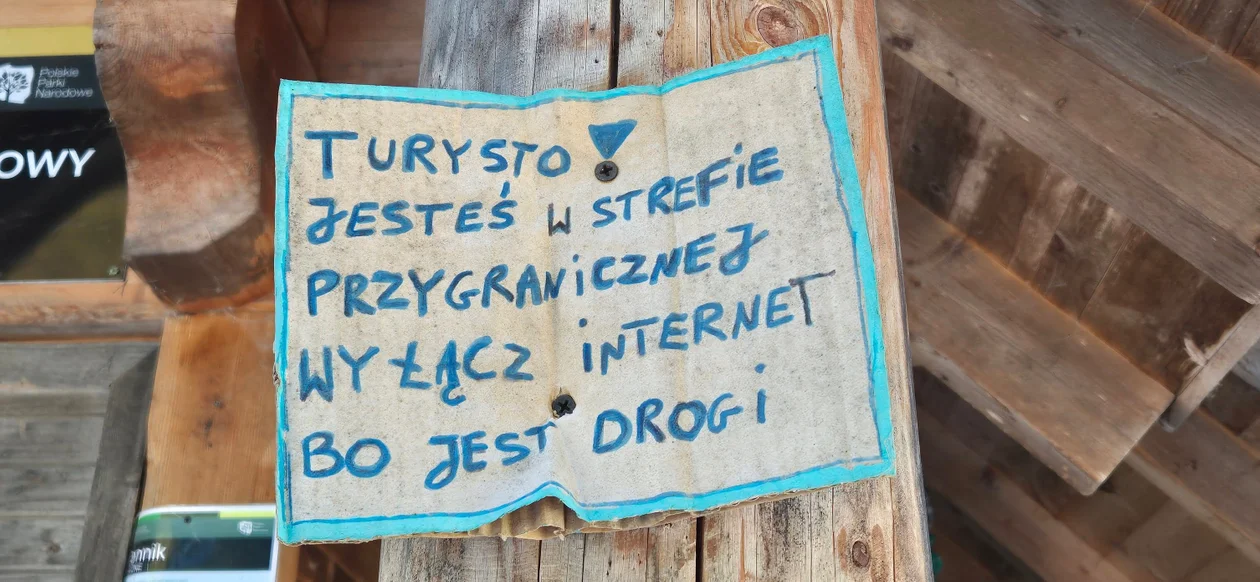 Polskie
Parki
Narodowe
OWY
TURYSTO
JESTEŚ W STREFIE
PRZYGRANiCZNEJ
WYŁĄCZ iNTERNET
BO JEST DROGi
nnik